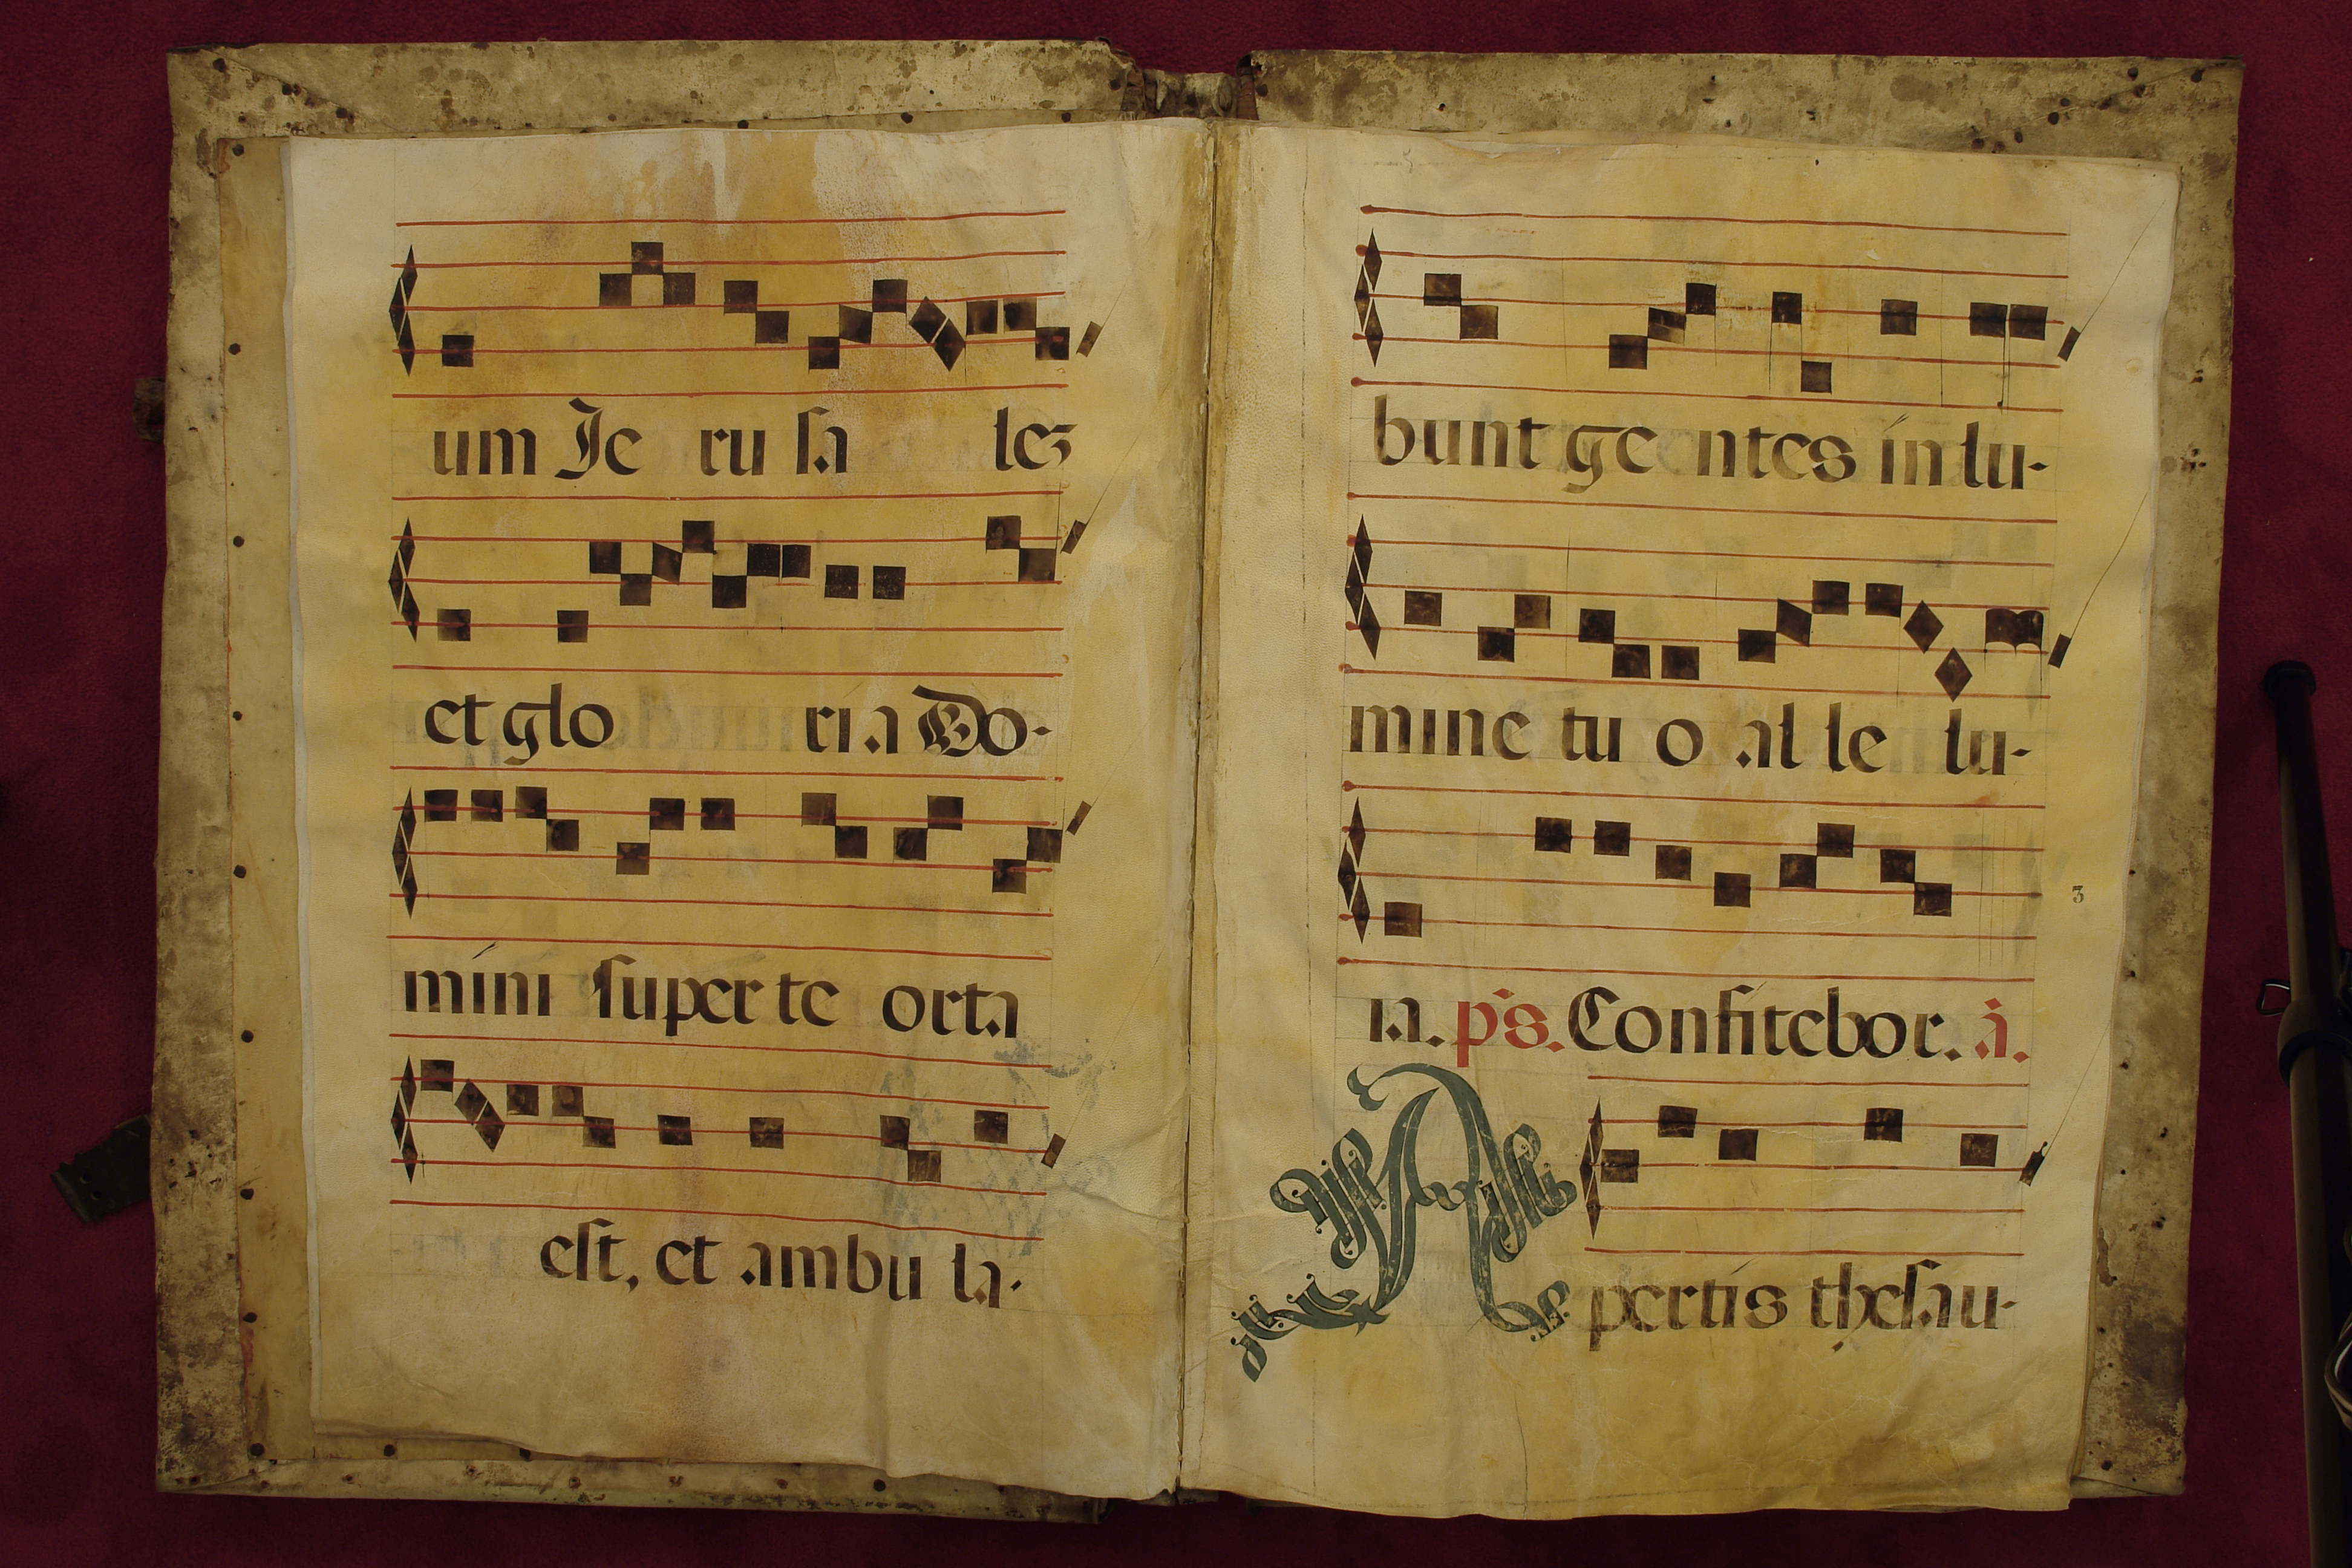 um Je ru sa lez
et glo ria Do-
mini super te orta
est, et ambu la-
bunt ge ntes in lu-
mine tu o al le lu-
3
ia. ps. Confitebor. a.
A
pertis thesau-